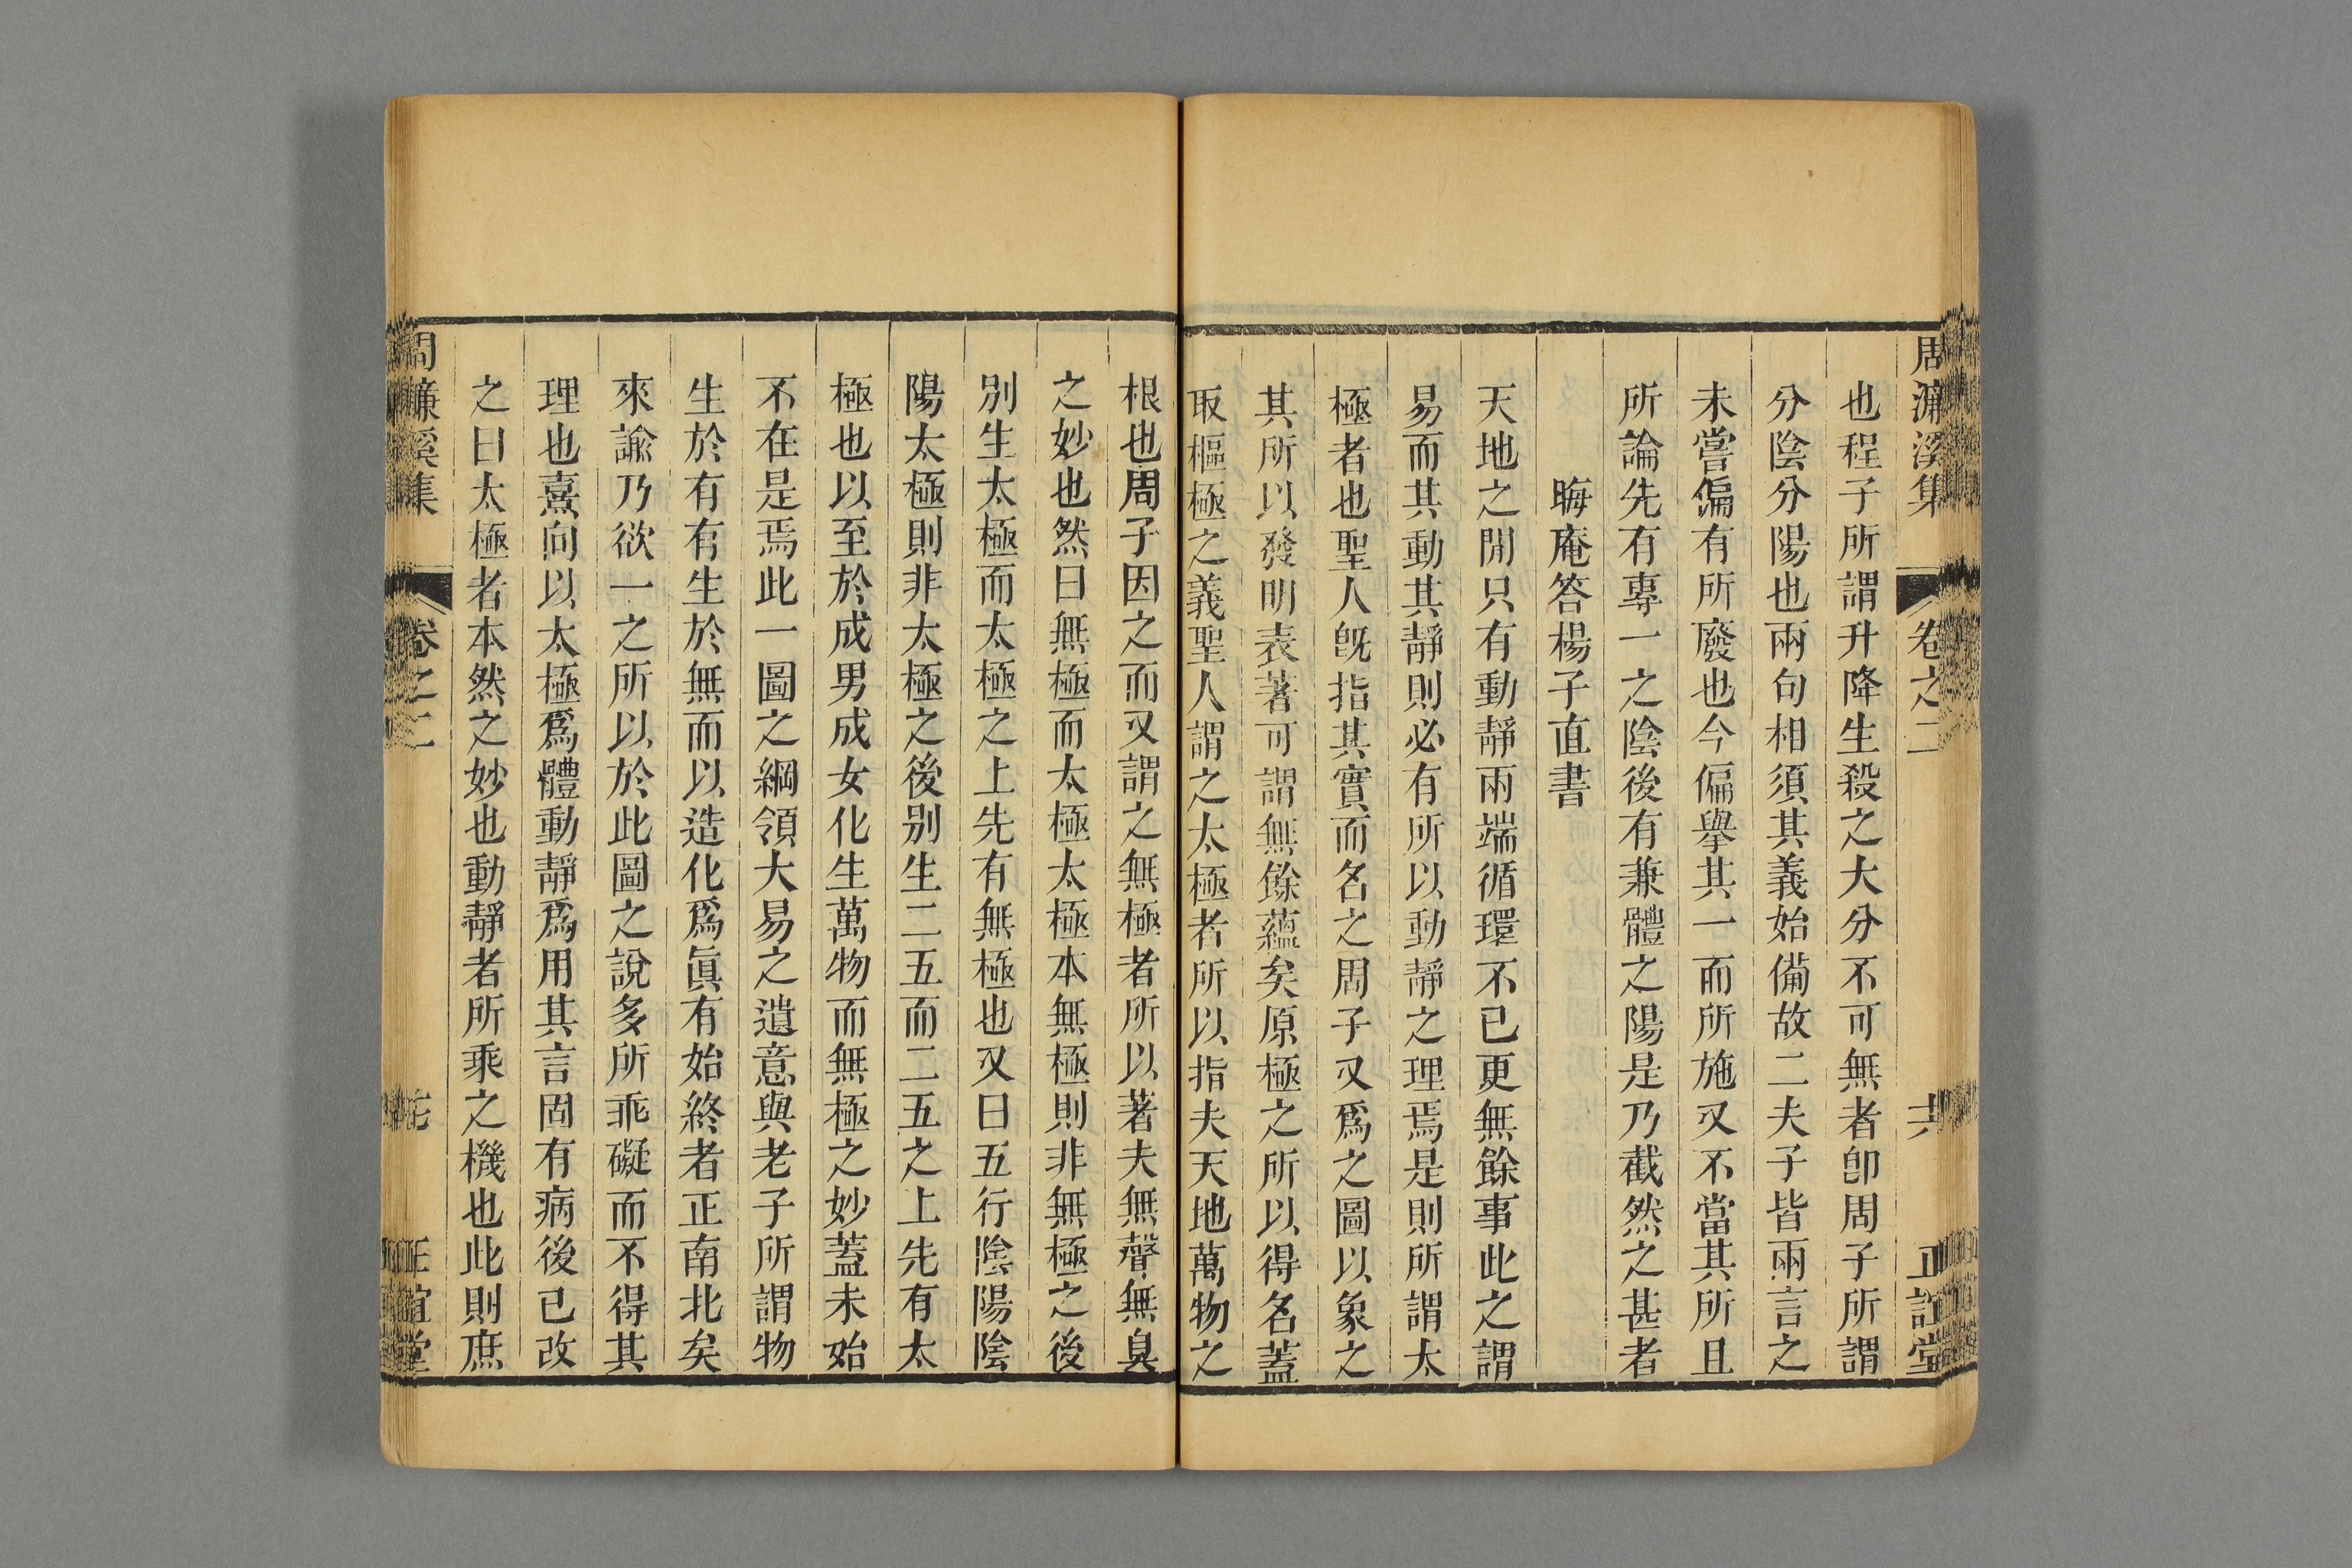 周濂溪集 卷之二 六 正誼堂
也程子所謂升降生殺之大分不可無者卽周子所謂
分陰分陽也兩句相須其義始備故二夫子皆兩言之
未嘗偏有所廢也今偏舉其一而所施又不當其所且
所論先有專一之陰後有兼體之陽是乃截然之甚者
晦庵答楊子直書
天地之閒只有動靜兩端循環不已更無餘事此之謂
易而其動其靜則必有所以動靜之理焉是則所謂太
極者也聖人旣指其實而名之周子又爲之圖以象之
其所以發明表著可謂無餘蘊矣原極之所以得名蓋
取樞極之義聖人謂之太極者所以指夫天地萬物之
根也周子因之而又謂之無極者所以著夫無聲無臭
之妙也然曰無極而太極太極本無極則非無極之後
別生太極而太極之上先有無極也又曰五行陰陽陰
陽太極則非太極之後別生二五而二五之上先有太
極也以至於成男成女化生萬物而無極之妙蓋未始
不在是焉此一圖之綱領大易之遺意與老子所謂物
生於有有生於無而以造化爲眞有始終者正南北矣
來諭乃欲一之所以於此圖之說多所乖礙而不得其
理也熹向以太極爲體動靜爲用其言固有病後已改
之曰太極者本然之妙也動靜者所乘之機也此則庶
周濂溪集 卷之二 正誼堂